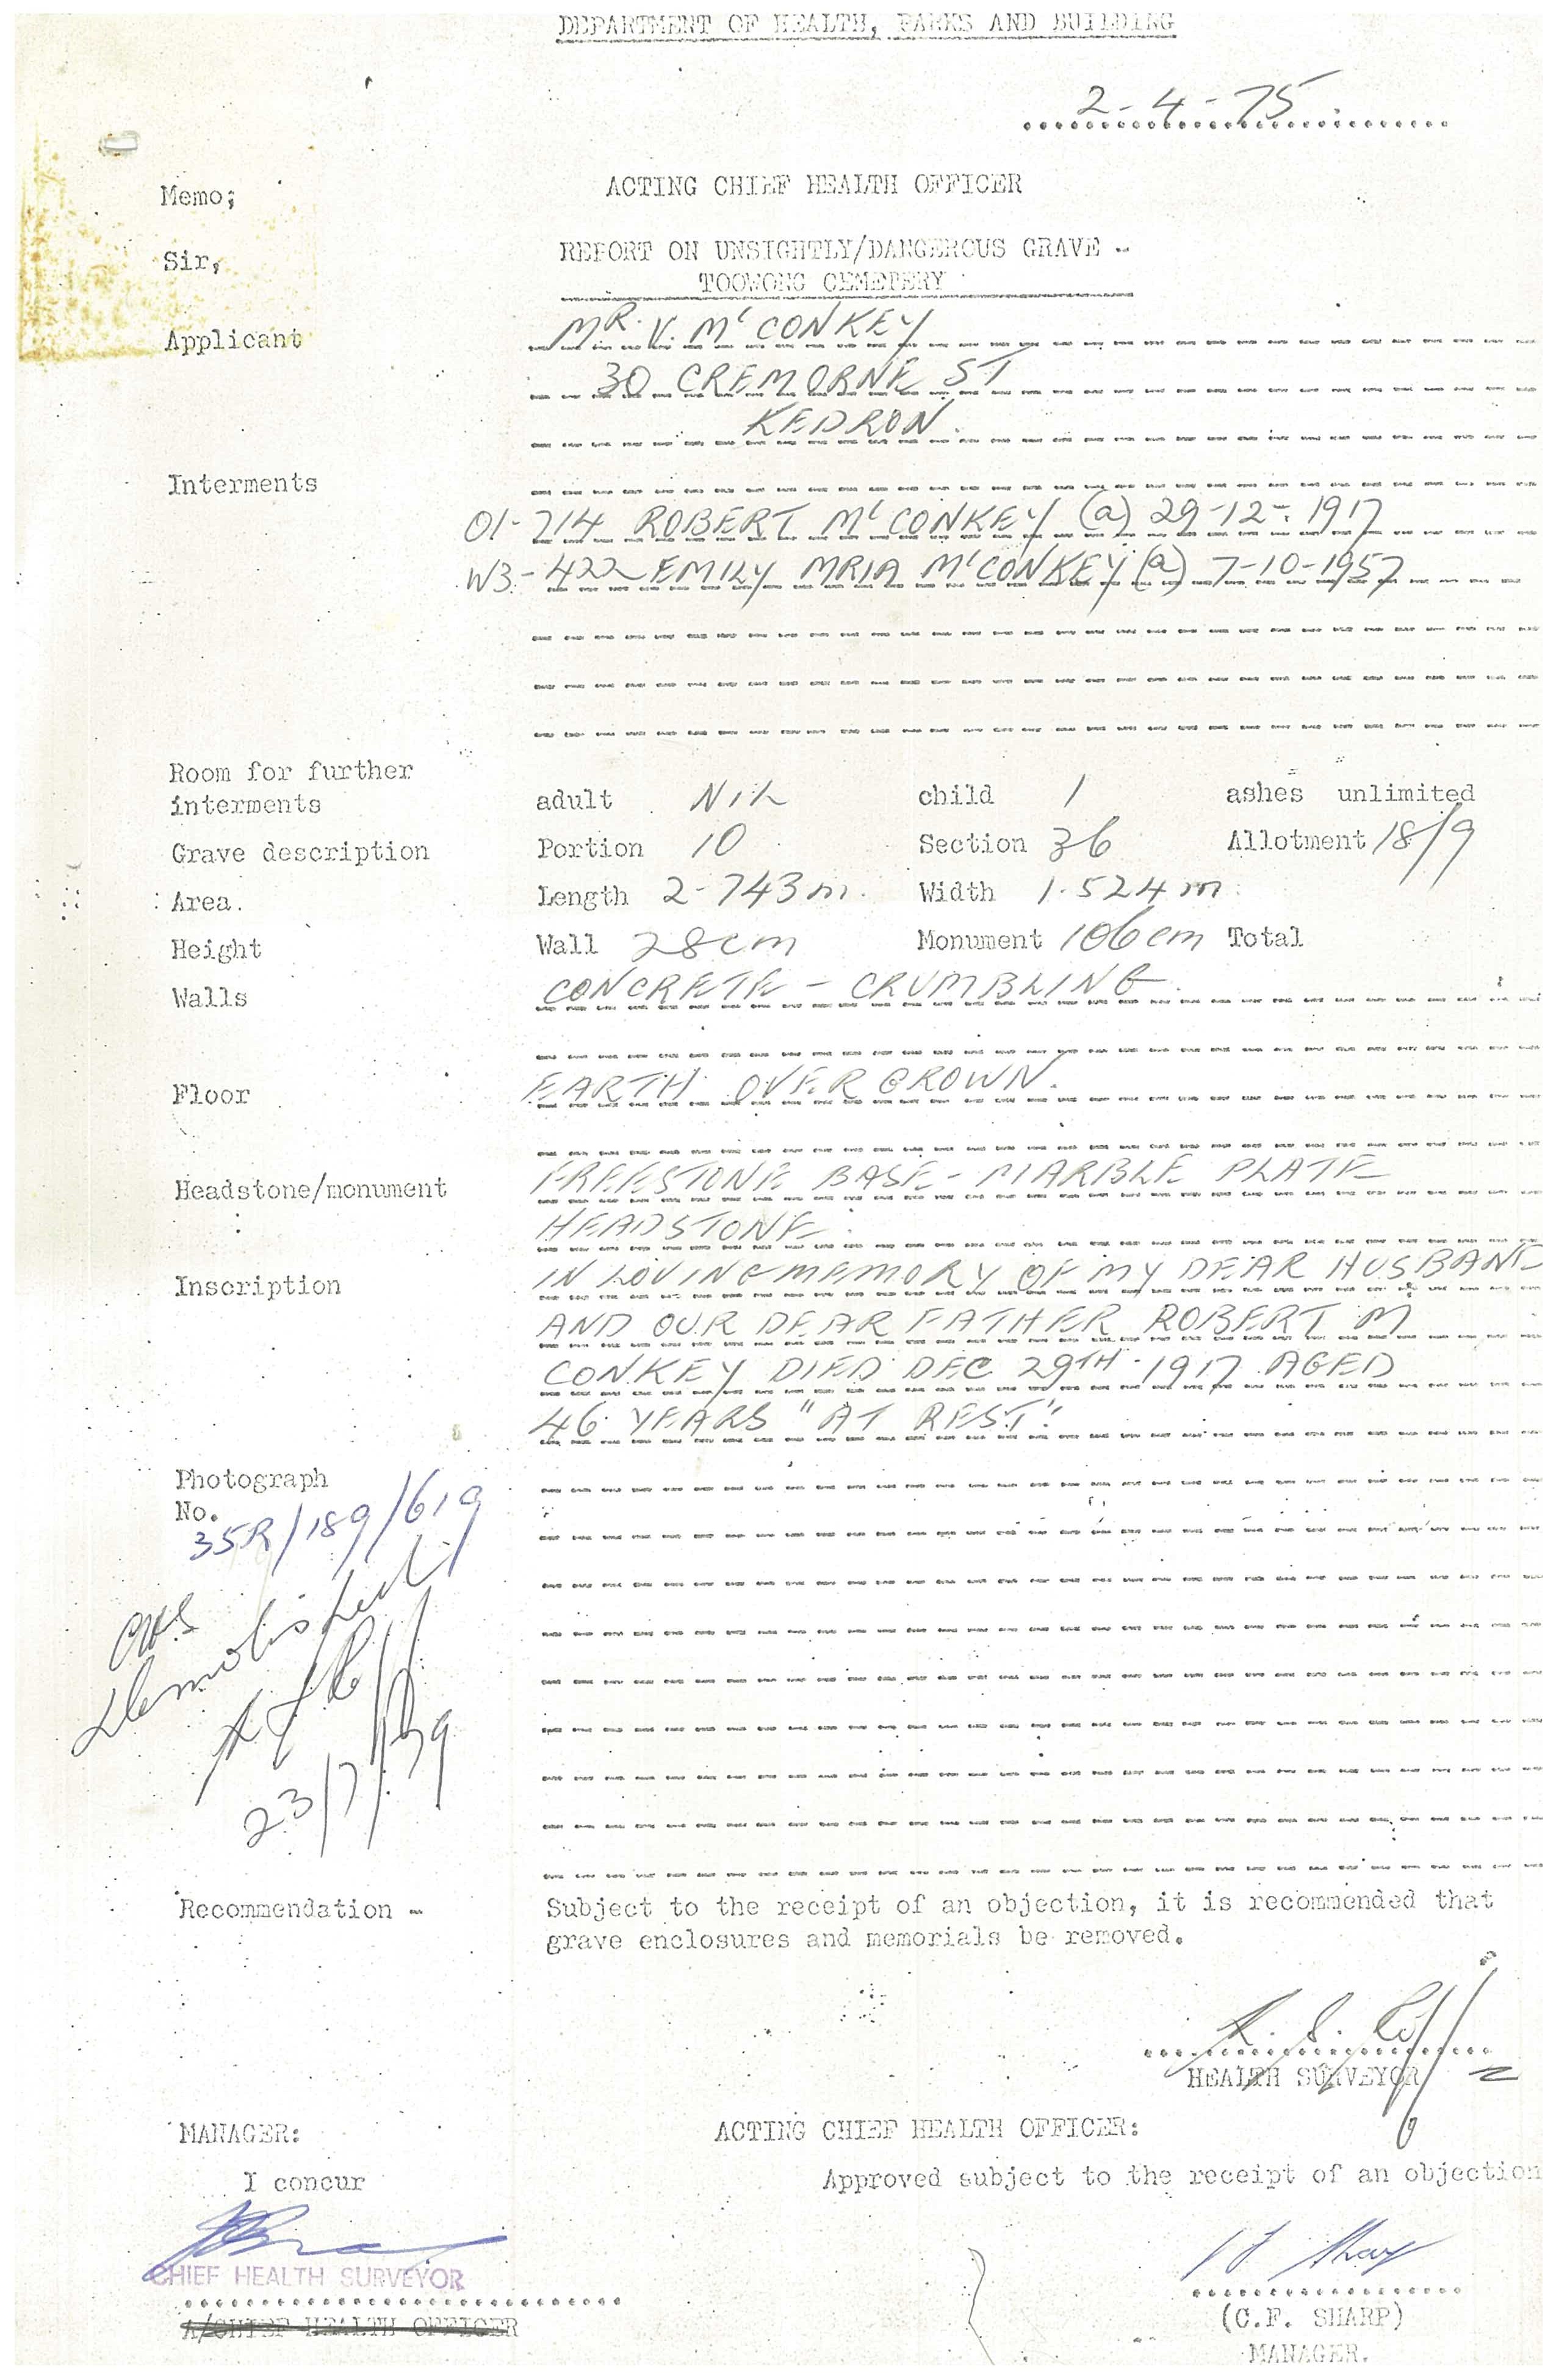 DEPARTMENT OF HEALTH, PARKS AND BUILDING
2-4-75
Memo; ACTING CHIEF HEALTH OFFICER
Sir, REPORT ON UNSIGHTLY/DANGEROUS GRAVE -
TOOWONG CEMETERY
Applicant MR. V. McCONKEY
30 CREMORNE ST
KEDRON.
Interments
01-714 ROBERT McCONKEY (a) 29-12-1917
W3-422 EMILY MRIA McCONKEY (a) 7-10-1957
Room for further
interments adult NIL child 1 ashes unlimited
Grave description Portion 10 Section 36 Allotment 18/9
Area. Length 2-743m. Width 1.524m
Height Wall 28cm Monument 106cm Total
Walls CONCRETE - CRUMBLING.
Floor EARTH OVERGROWN.
Headstone/monument FREESTONE BASE - MARBLE PLATE
HEADSTONE.
Inscription IN LOVING MEMORY OF MY DEAR HUSBAND
AND OUR DEAR FATHER ROBERT M
CONKEY DIED DEC 29TH 1917 AGED
46 YEARS "AT REST".
Photograph
No.
35R/189/619
Demolished
23/7/79
Recommendation - Subject to the receipt of an objection, it is recommended that
grave enclosures and memorials be removed.
HEALTH SURVEYOR
MANAGER: ACTING CHIEF HEALTH OFFICER:
I concur Approved subject to the receipt of an objection
CHIEF HEALTH SURVEYOR
A/CHIEF HEALTH OFFICER (C.F. SHARP)
MANAGER.